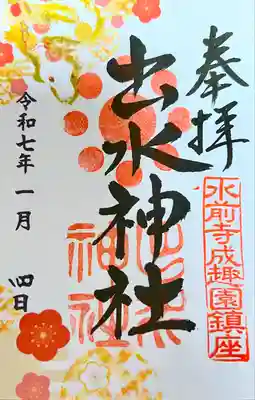 奉拝
水前寺成趣園鎮座
出水神社
出水神社
令和七年 一月 四日